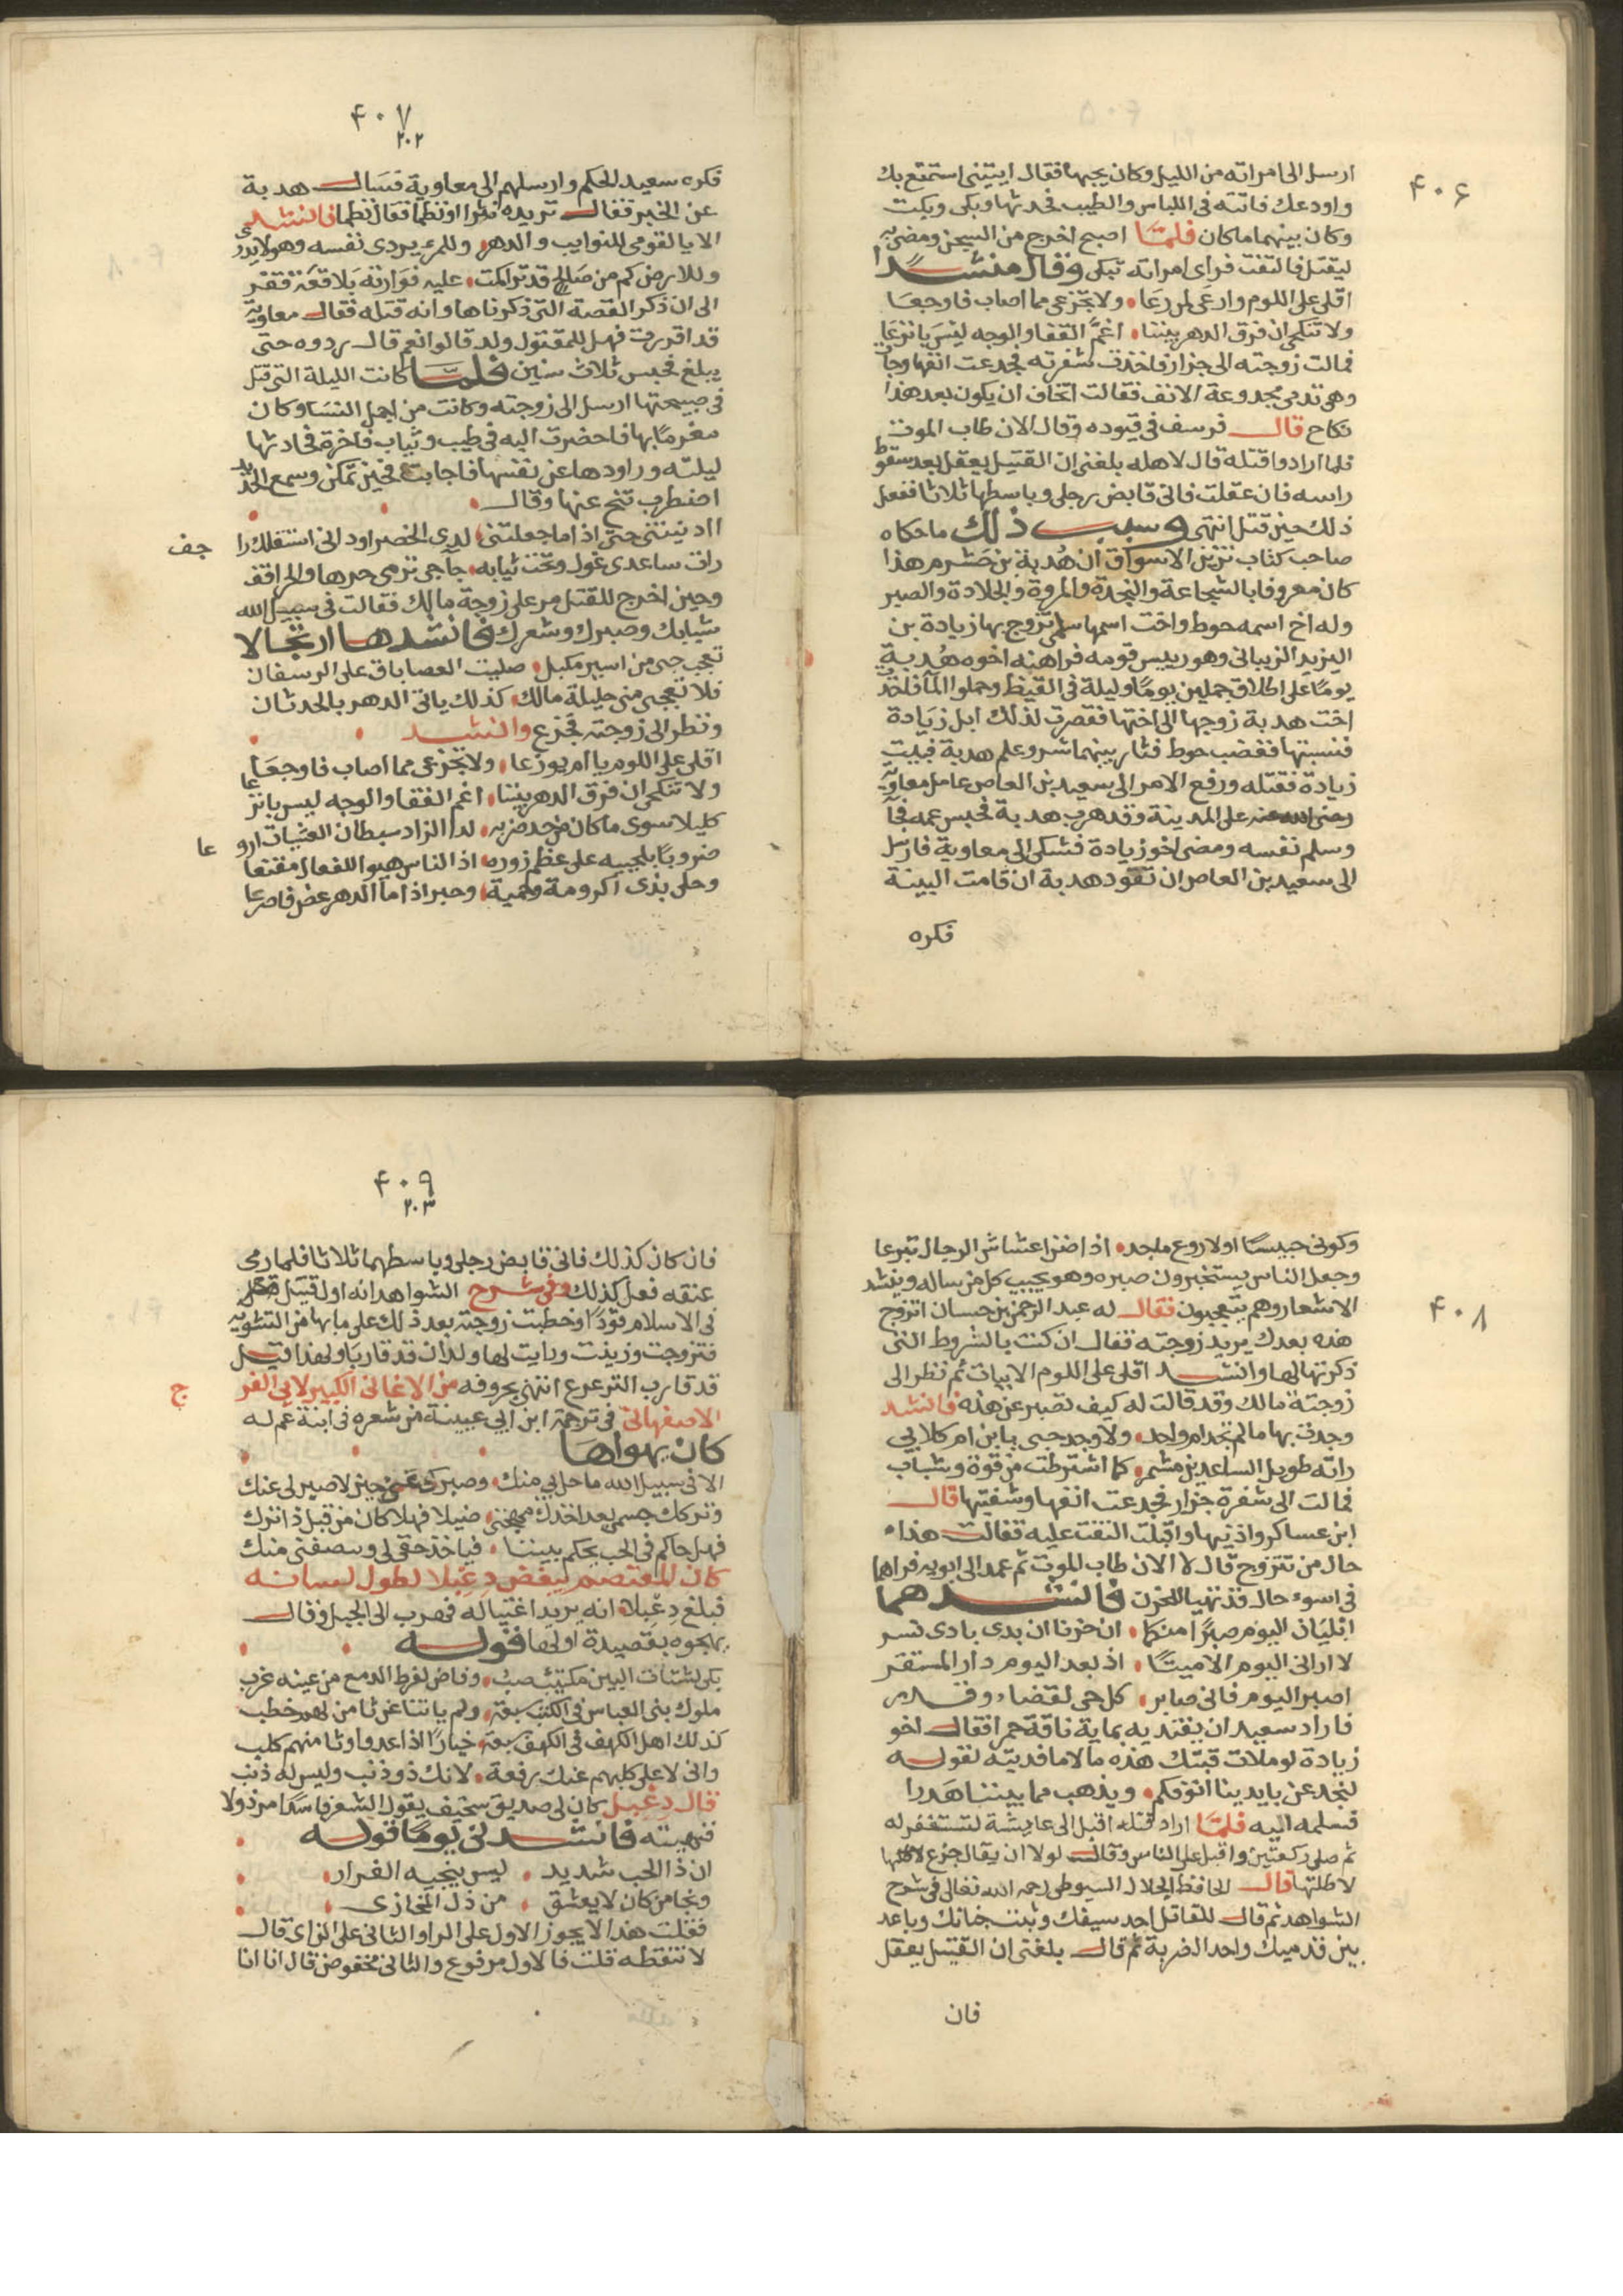 ۴۰۶
ارسل الى امراته من الليل وكان يحبها فقال ايتينى استمتع بك
واودعك فاتته فى اللباس والطيب فحدثها وبكى وبكت
وكان بينهما ما كان فلمّا اصبح اخرج من السجن ومضى به
ليقتل فالتفت فراى امراته تبكى وقال منشدًا
اقلى على اللوم وارعى لمن رعا ولا تجزعى مما اصاب فاوجعا
ولا تنكحى ان فرق الدهر بيننا اغمّ القفا والوجه ليس بانزعا
فمالت زوجته الى جزار فاخذت شفرته فجدعت انفها وجاءت
وهى تدمى مجدوعة الانف فقالت اتخاف ان يكون بعد هذا
نكاح قال فرسف فى قيوده وقال الان طاب الموت
فلما ارادوا قتله قال لاهله بلغنى ان القتيل يعقل بعد سقوط
راسه فان عقلت فانى قابض رجلى وباسطها ثلاثا ففعل
ذلك حين قتل انتهى وسبب ذلك ما حكاه
صاحب كتاب تزيين الاسواق ان هُدبة بن خشرم هذا
كان معروفا بالشجاعة والنجدة والمروة والجلادة والصبر
وله اخ اسمه حوط واخت اسمها سلمى تزوج بها زيادة بن
اليزيد الزيبانى وهو رييس قومه فراهنه اخوه هُدبة
يومًا على اطلاق جملين يومًا وليلة فى القيظ وحملوا الماء فاخذ
اخت هدبة زوجها الى اختها فقصرت لذلك ابل زيادة
فنسبتها فغضب حوط فثار بينهما شر وعلم هدبة فبيت
زيادة فقتله ورفع الامر الى سعيد بن العاص عامل معاوية
رضى الله عنه على المدينة وقد هرب هدبة فحبس عمه فجآ
وسلم نفسه ومضى اخو زيادة فشكى الى معاوية فارسل
الى سعيد بن العاص ان تقود هدبة ان قامت البينة
فكره
۴۰۷
۲۰۲
فكره سعيد الحكم وارسلهم الى معاوية فسال هدبة
عن الخبر فقال تريده نثرا او نظما فقال نظما فانشد
الا يا لقومى للنوايب والدهر وللمرء يردى نفسه وهو لا يدرى
وللارض كم من صالح قد تراكمت عليه فوارته بلاقعة قفر
الى ان ذكر القصة التى ذكرناها وانه قتله فقال معاوية
قد اقررت فهل للمقتول ولد قالوا نعم قال ردوه حتى
يبلغ فحبس ثلاث سنين فلمّا كانت الليلة التى قتل
فى صبيحتها ارسل الى زوجته وكانت من اجمل النسا وكان
مغرمًا بها فاحضرت اليه فى طيب وثياب فاخرة فحادثها
ليلته وراودها عن نفسها فاجابت فحين تمكن وسمع الحديد
اضطرب تنح عنها وقال
اادنيتنى حتى اذا ما جعلتنى لدى الخصر او ادنى استقلك را جف
رات ساعدى غول وتحت ثيابه جآجى ترمى حرها والحراقف
وحين اخرج للقتل مر على زوجة مالك فقالت فى سبيل الله
شبابك وصبرك وشعرك فانشدها ارتجالا
تعجب حبى من اسير مكبل صليت العصا باق على الرسفان
فلا تعجبى منى حليلة مالك كذلك ياتى الدهر بالحدثان
ونظر الى زوجته تجزع وانشد
اقلى على اللوم يا ام بوزعا ولا تجزعى مما اصاب فاوجعا
ولا تنكحى ان فرق الدهر بيننا اغم القفا والوجه ليس بانزعا
كليلا سوى ما كان من حد ضربه لدا الزاد سبطان العشيات ارو عا
ضروبًا بلحييه على عظم زوره اذا الناس هبوا للفعال مقنعا
وحلى بذى اكرومة وحمية وحبرا اذا ما الدهر عض فاصرعا
۴۰۸
وكونى حبيسًا او لاروع ماجد اذا ضن اعشاش الرجال تبرعا
وجعل الناس يستخبرون صبره وهو يجيب كل من ساله وينشد
الاشعار وهم يتعجبون فقال له عبد الرحمن بن حسان اتزوج
هذه بعدك يريد زوجته فقال ان كنت بالشروط التى
ذكرتها لها وانشد اقلى على اللوم الابيات ثم نظر الى
زوجة مالك وقد قالت له كيف تصبر عن هذه فانشد
وجدت بها ما لم تجد ام واحد ولا وجد حبى بابن ام كلاب
راته طويل الساعدين مشمر كما اشترطت من قوة وشباب
فمالت الى شفرة جزار فجدعت انفها وشفتيها قال
ابن عساكر واذنيها واقبلت التفت عليه فقالت هذا
حال من تتزوج قال لا الان طاب الموت ثم عمد الى ابويه فراهما
فى اسوء حال قد تهيا للحزن فانشدهما
ابليانى اليوم صبرًا منكما ان حزنا ان بدى بادى شر
لا ارانى اليوم الا ميتًا اذ بعد اليوم دار المستقر
اصبر اليوم فانى صابر كل حى لقضاء وقدر
فاراد سعيد ان يفتديه بماية ناقة حمرا فقال اخو
زيادة لو ملات قبتك هذه مالا ما فديته لقوله
لنجدعن بايدينا انوفكم ويذهب مما بيننا هدرا
فسلمه اليه فلمّا اراد قتله اقبل الى عايشة لتستغفر له
ثم صلى ركعتين واقبل على الناس وقال لولا ان يقال جزع
لاطلتها قال الحافظ الجلال السيوطى رحمه الله تعالى فى شرح
الشواهد ثم قال للقاتل احد سيفك وثبت جنانك وباعد
بين قدميك واحد الضربة ثم قال بلغنى ان القتيل يعقل
فان
۴۰۹
۲۰۳
فان كان كذلك فانى قابض رجلى وباسطهما ثلاثا فلما رمى
عنقه فعل كذلك وفى شرح الشواهد انه اول قتيل قتل
فى الاسلام قودًا وخطبت زوجته بعد ذلك على ما بها من التشويه
فتزوجت وزيدت ورايت لها ولدان قد قاربا ولهذا قيل
قد قارب الترعرع انتهى بحروفه من الاغانى الكبير لابى الفر ج
الاصفهانى فى ترجمة ابن ابى عيينة من شعره فى ابنة عم له
كان يهواها
الا فى سبيل الله ما حل بى منك وصبرك عنى حين لا صبر لى عنك
وتركك جسمى بعد اخذك مهجتى ضيلا فهلا كان من قبل ذا تركى
فهل حاكم فى الحب يحكم بيننا فياخذ حقى لى وينصفنى منك
كان المعتصم يبغض دعبلا لطول لسانه
فبلغ دعبلا انه يريد اغتياله فهرب الى الجبل وقال
يهجوه بقصيدة اولها قوله
بكى لشتات البين مكتيب صب وفاض لفرط الدمع من عينه غرب
ملوك بنى العباس فى الكتب سبعة ولم ياتنا عن ثامن لهم خطب
كذلك اهل الكهف فى الكهف سبعة خيارًا اذا عدوا وثامنهم كلب
وانى لاعلى كلبهم عنك رفعة لانك ذو ذنب وليس له ذنب
قال دعبل كان لى صديق سخيف يقول الشعر فاسدًا مرذولا
فنهيته فانشدنى يومًا قوله
ان ذا الحب شديد ليس ينجيه الفرار
ونجا من كان لا يعشق من ذل المخازى
فقلت هذا لا يجوز الاول على الرا والثانى على الزاى قال
لا تنقطه قلت فالاول مرفوع والثانى مخفوض قال انا انا